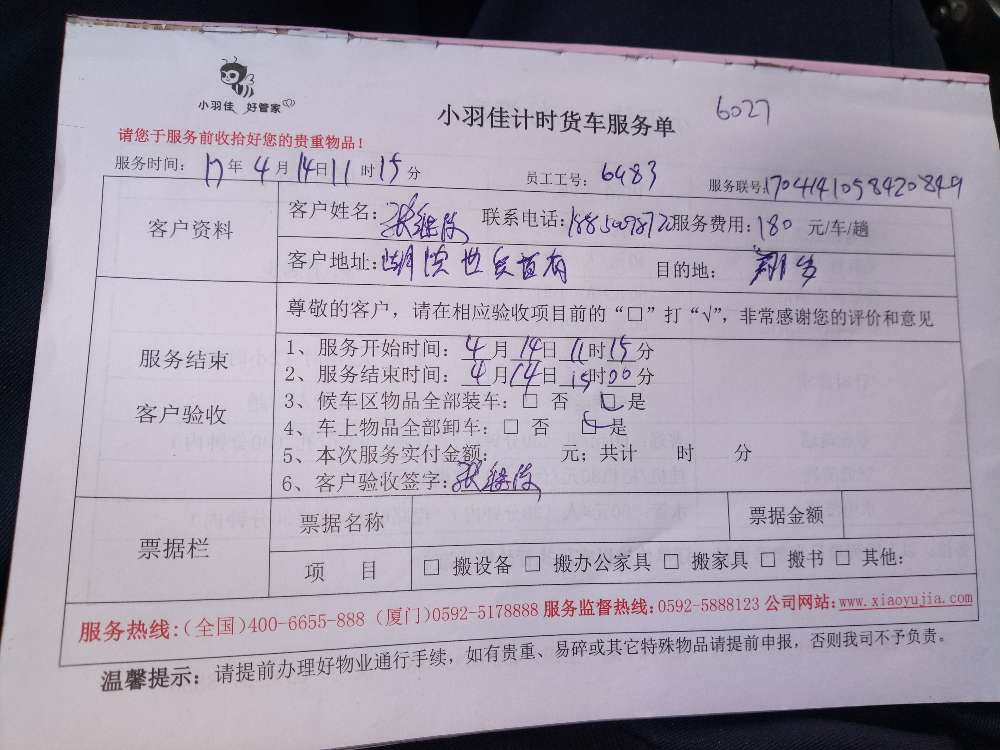 小羽佳 好管家
小羽佳计时货车服务单
6027
请您于服务前收拾好您的贵重物品！
服务时间：17年4月14日11时15分 员工工号：6483 服务联号:1704141058420849
客户资料
客户姓名： 联系电话: 服务费用:180 元/车/趟
客户地址: 目的地：
尊敬的客户，请在相应验收项目前的“□”打“√”，非常感谢您的评价和意见
服务结束
客户验收
1、服务开始时间：4月14日11时15分
2、服务结束时间：4月14日15时00分
3、候车区物品全部装车：□ 否 □是
4、车上物品全部卸车：□ 否 □是
5、本次服务实付金额： 元；共计 时 分
6、客户验收签字：
票据栏
票据名称 票据金额
项 目 □ 搬设备 □ 搬办公家具 □ 搬家具 □ 搬书 □ 其他：
服务热线:(全国)400-6655-888 (厦门)0592-5178888 服务监督热线:0592-5888123 公司网站:www.xiaoyujia.com
温馨提示：请提前办理好物业通行手续，如有贵重、易碎或其它特殊物品请提前申报，否则我司不予负责。